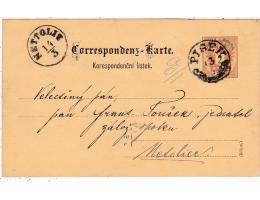 NETTOLIC
14/5
Correspondenz-Karte.
Korespondenční lístek.
PISEK
Velectěný pán,
pan Franz Toušek, jednatel
spolku
Netolice
(Böhm.)